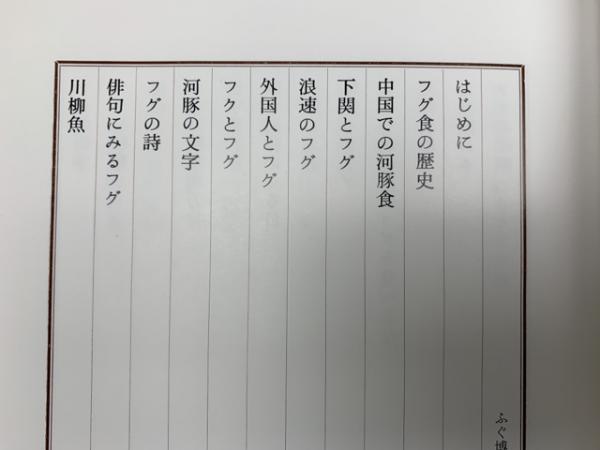 ふぐ博
はじめに
フグ食の歴史
中国での河豚食
下関とフグ
浪速のフグ
外国人とフグ
フクとフグ
河豚の文字
フグの詩
俳句にみるフグ
川柳魚